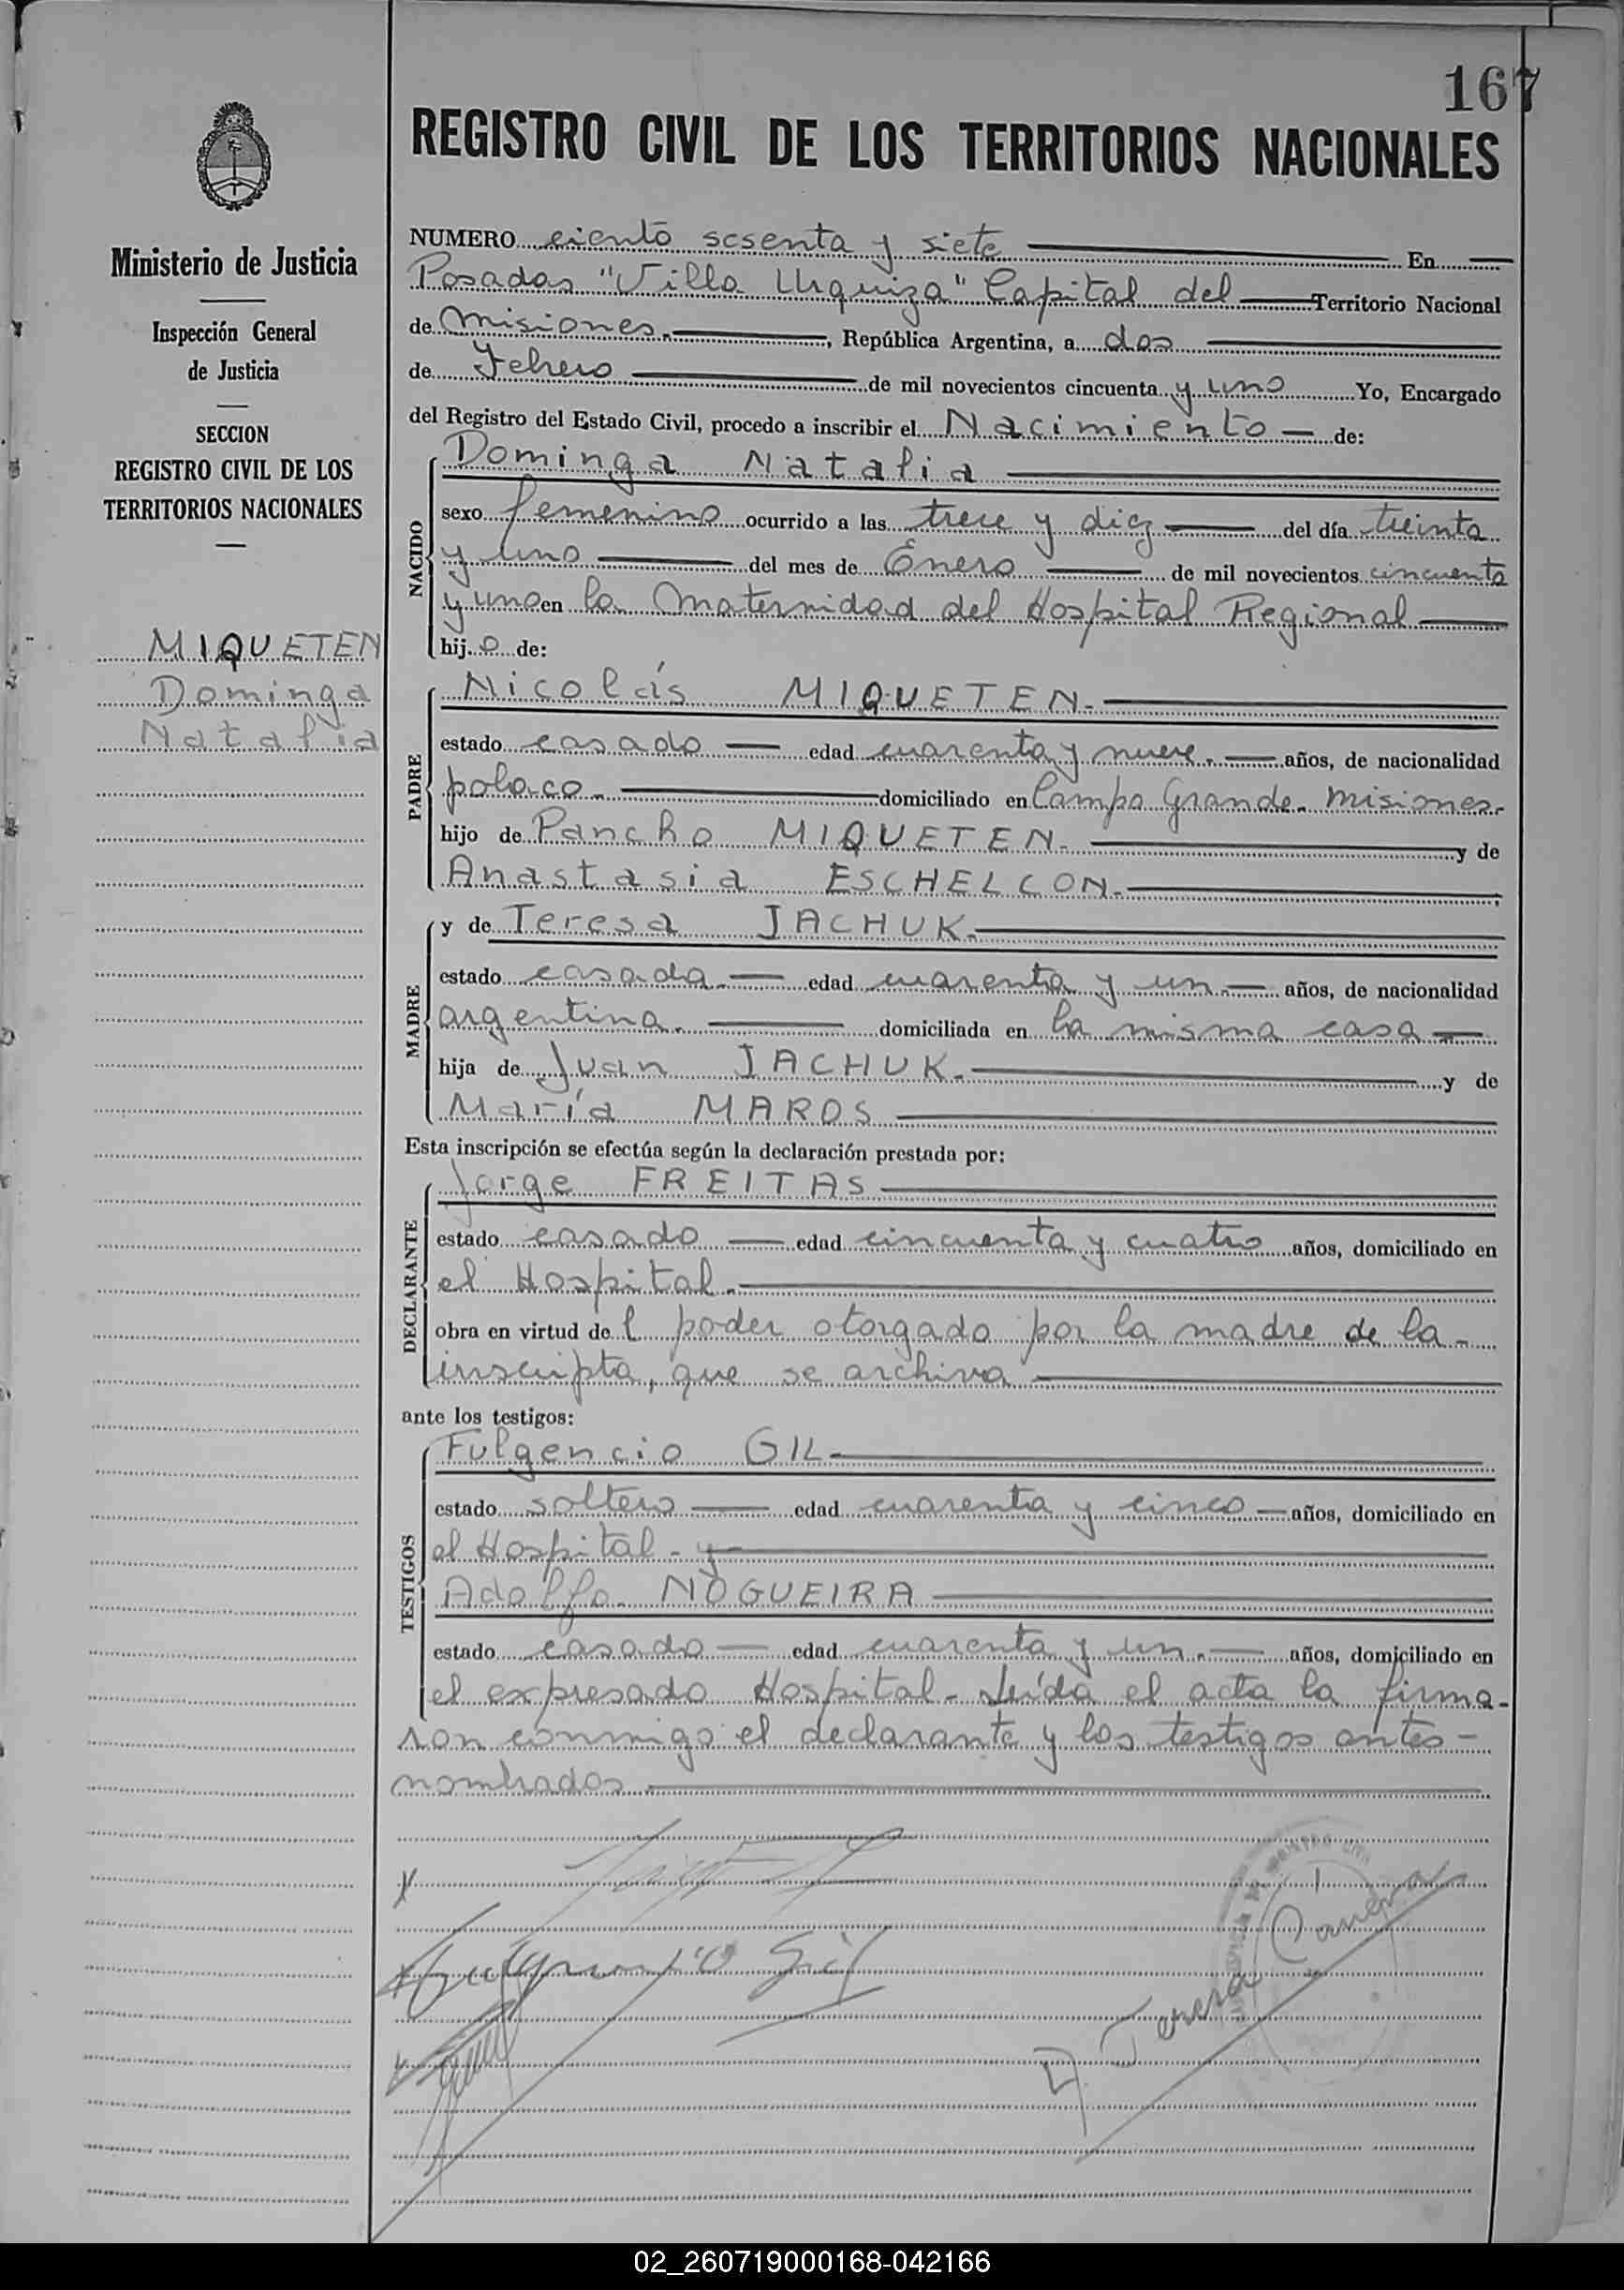 167
REGISTRO CIVIL DE LOS TERRITORIOS NACIONALES
Ministerio de Justicia
Inspección General
de Justicia
SECCION
REGISTRO CIVIL DE LOS
TERRITORIOS NACIONALES
MIQUETEN
Dominga
Natalia
NUMERO ciento sesenta y siete En
Posadas "Villa Urquiza" Capital del Territorio Nacional
de Misiones. , República Argentina, a dos
de Febrero de mil novecientos cincuenta y uno Yo, Encargado
del Registro del Estado Civil, procedo a inscribir el Nacimiento de:
NACIDO
Dominga Natalia
sexo femenino ocurrido a las trece y diez del día treinta
y uno del mes de Enero de mil novecientos cincuenta
y uno en la Maternidad del Hospital Regional
hij o de:
PADRE
Nicolás MIQUETEN.
estado casado edad cuarenta y nueve. años, de nacionalidad
polaco. domiciliado en Campo Grande. Misiones.
hijo de Pancho MIQUETEN. y de
Anastasia ESCHELCON.
MADRE
y de Teresa JACHUK.
estado casada. edad cuarenta y un. años, de nacionalidad
argentina. domiciliada en la misma casa
hija de Juan JACHUK. y de
María MAROS
Esta inscripción se efectúa según la declaración prestada por:
DECLARANTE
Jorge FREITAS
estado casado edad cincuenta y cuatro años, domiciliado en
el Hospital.
obra en virtud de l poder otorgado por la madre de la
inscripta, que se archiva
ante los testigos:
TESTIGOS
Fulgencio GIL
estado soltero edad cuarenta y cinco años, domiciliado en
el Hospital - y
Adolfo NOGUEIRA
estado casado edad cuarenta y un. años, domiciliado en
el expresado Hospital. Leída el acta la firma-
ron conmigo el declarante y los testigos antes-
nombrados
Fulgencio Gil
Teresa Canera
02_260719000168-042166